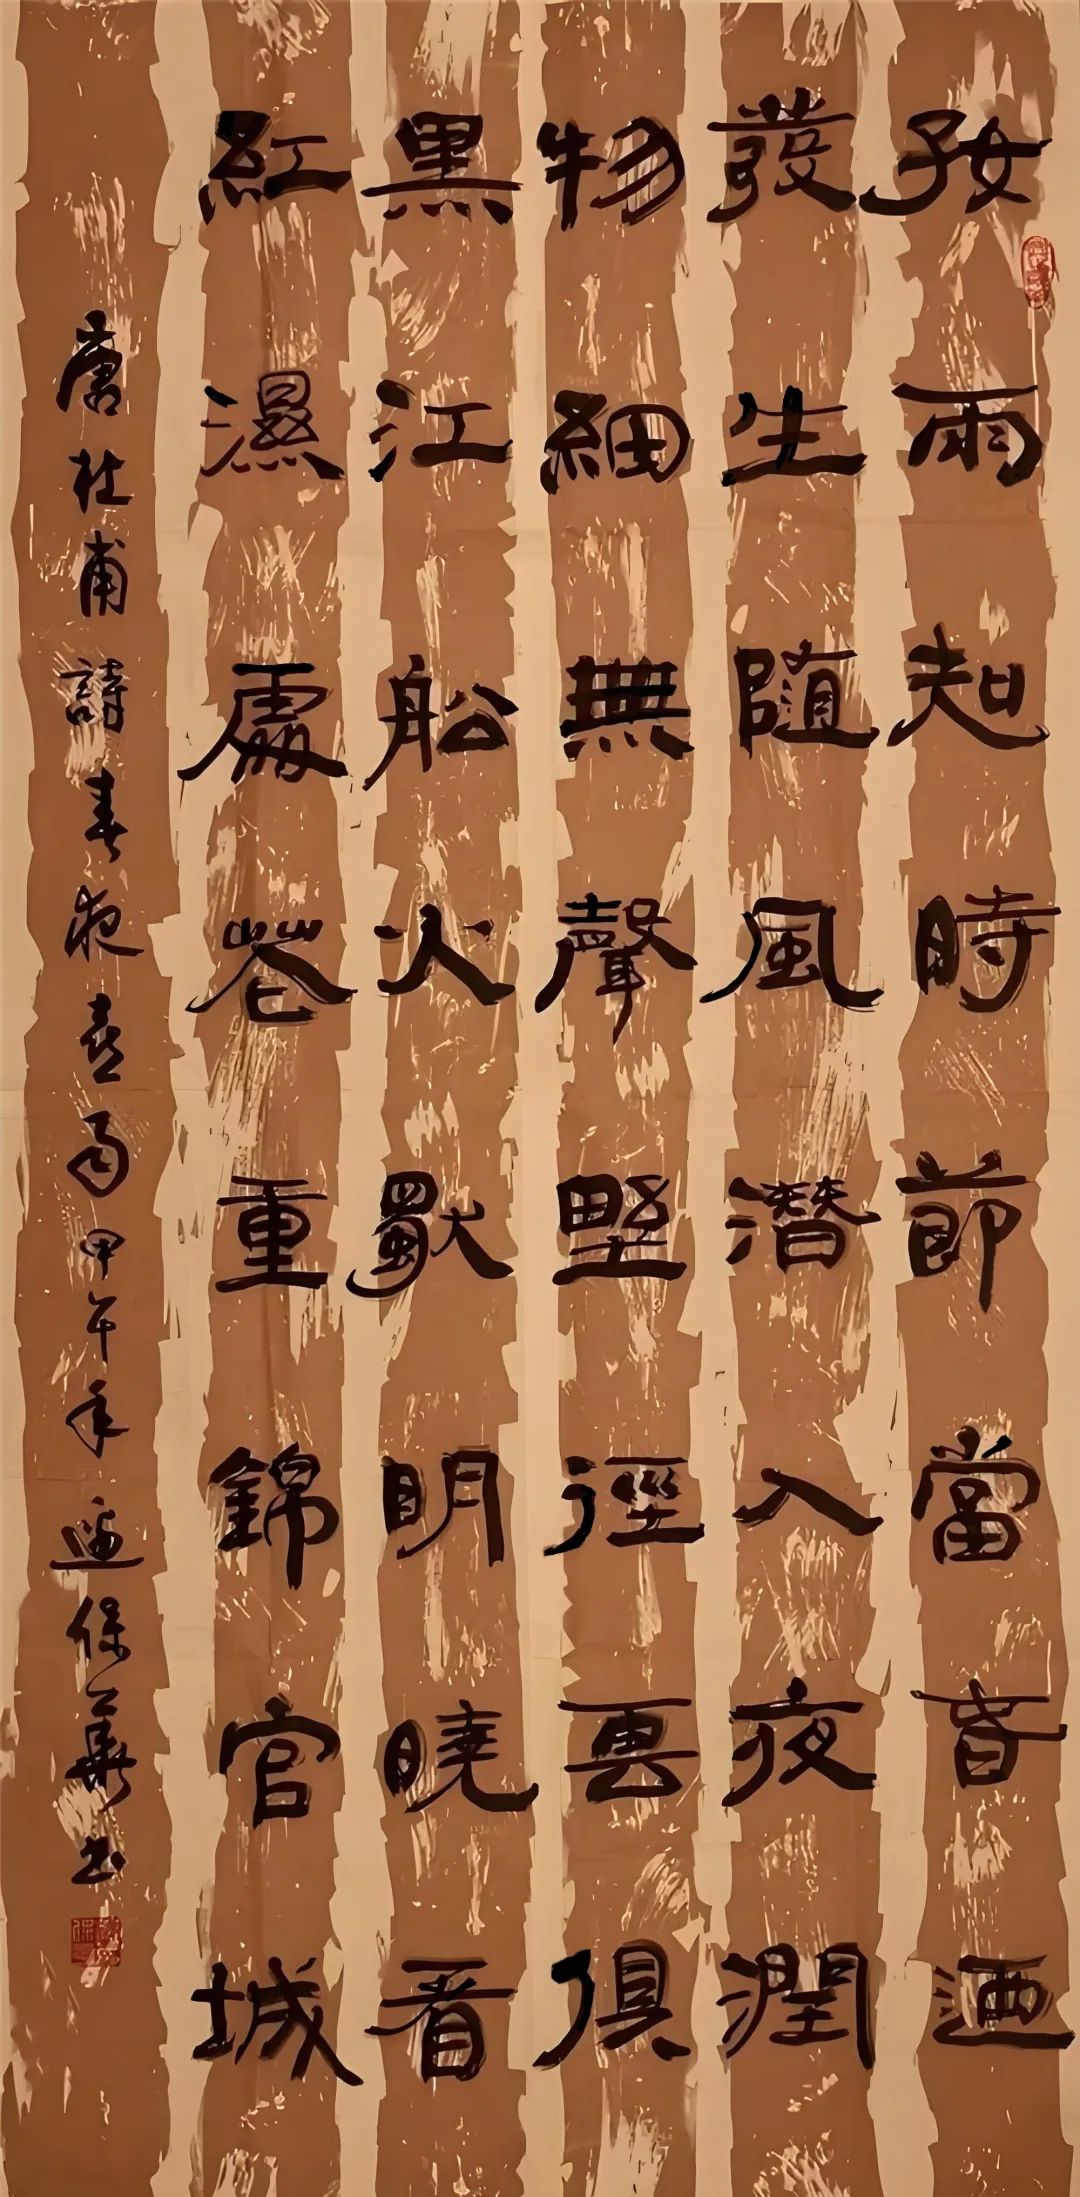 好雨知時節當春迺
發生随風潛入夜潤
物細無聲野徑雲俱
黑江船火獨明曉看
紅濕處花重錦官城
唐杜甫詩春夜喜雨甲午年邊保華书